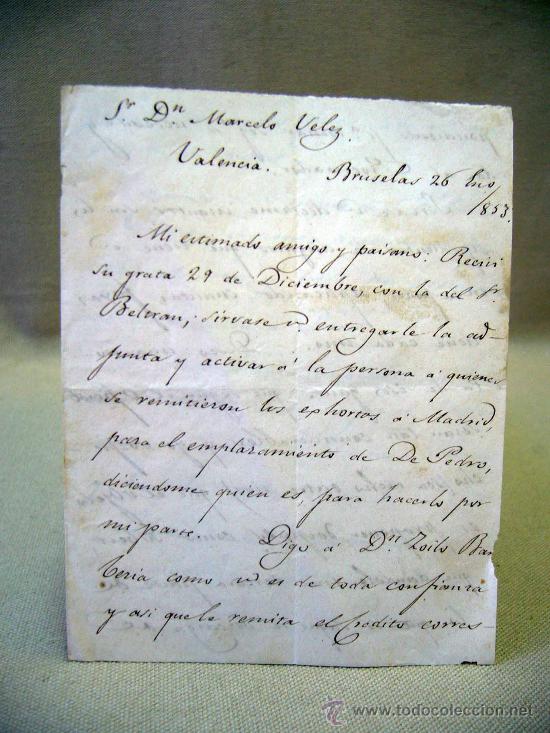 Sr Dn Marcelo Velez.
Valencia.
Bruselas 26 Eno
/853.
Mi estimado amigo y paisano: Recivi
su grata 29 de Diciembre, con la del Sr.
Beltran; sirvase vd entregarle la ad-
junta y activar á la persona á quienes
se remitieron los exhortos á Madrid,
para el emplazamiento de De Pedro,
diciendome quien es, para hacerlo por
mi parte. Digo á Dn Zoilo Bar
beria como vd es de toda confianza
y asi que le remita el Credito corres-
www.todocoleccion.net